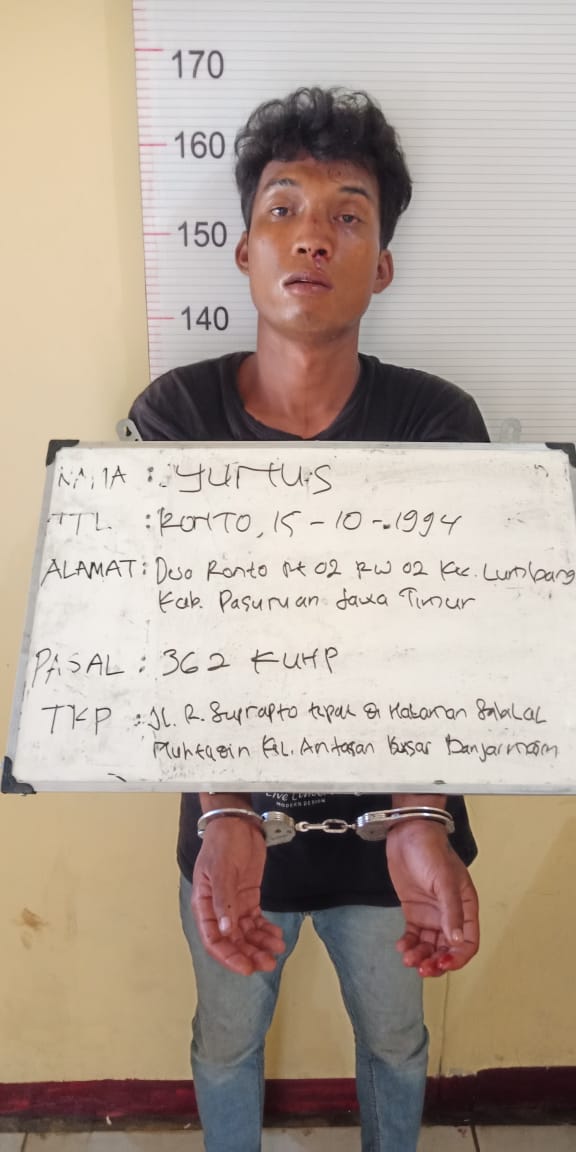 170
160
150
140
NAMA : YUNUS
TTL : RONTO, 15-10-1994
ALAMAT : Desa Ronto Rt 02 RW 02 Kec. Lumbang
Kab. Pasuruan Jawa Timur
PASAL : 362 KUHP
TKP : Jl. R. Suprapto tepat di Halaman
Kel. Antasan Besar Banjarmasin
MODERN DESIGN